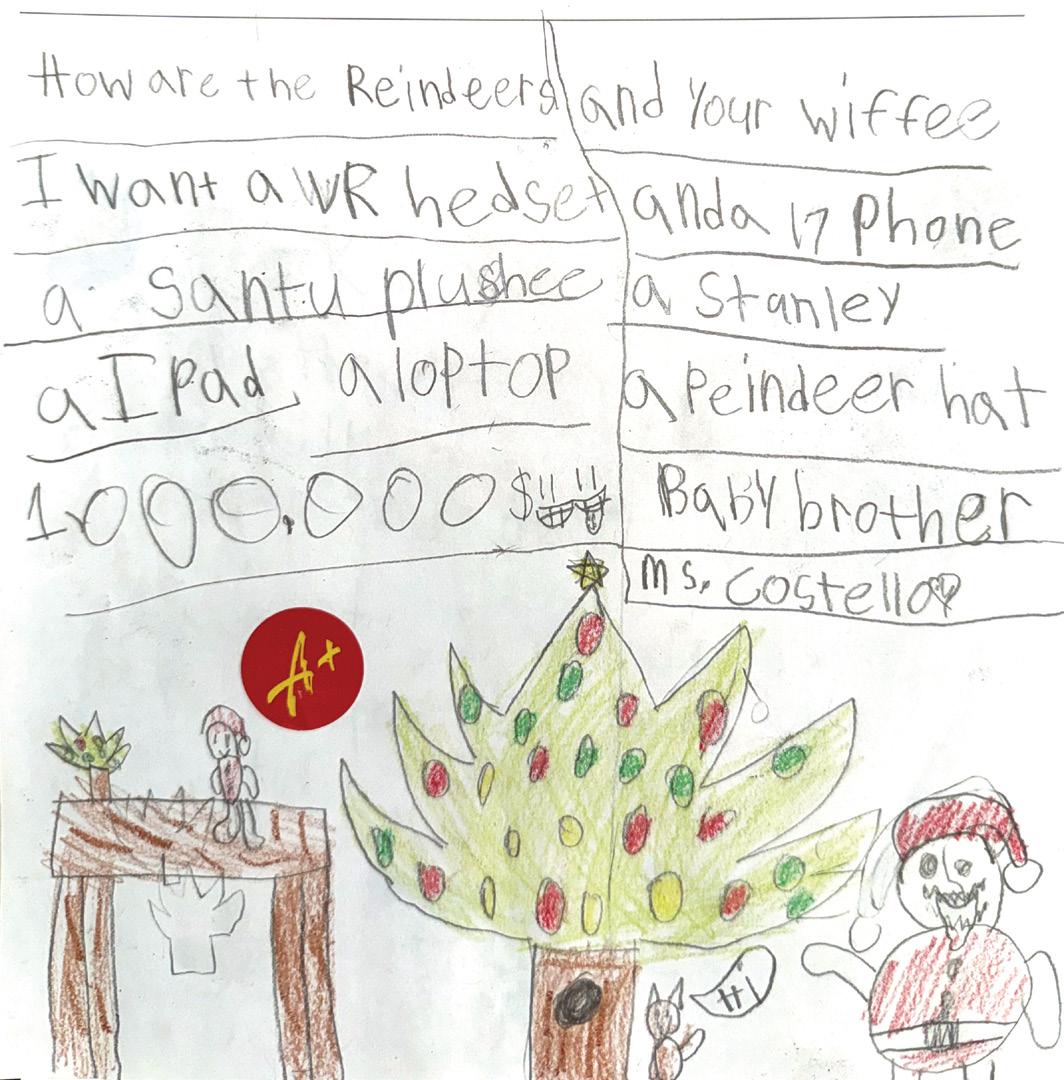 How are the Reindeers
I want a VR hedset
a Santu plushee
a I Pad, a loptop
1000,000 $
and Your wiffee
and a 17 Phone
a Stanley
a Reindeer hat
Baby brother
Ms. Costello
A+
Hi